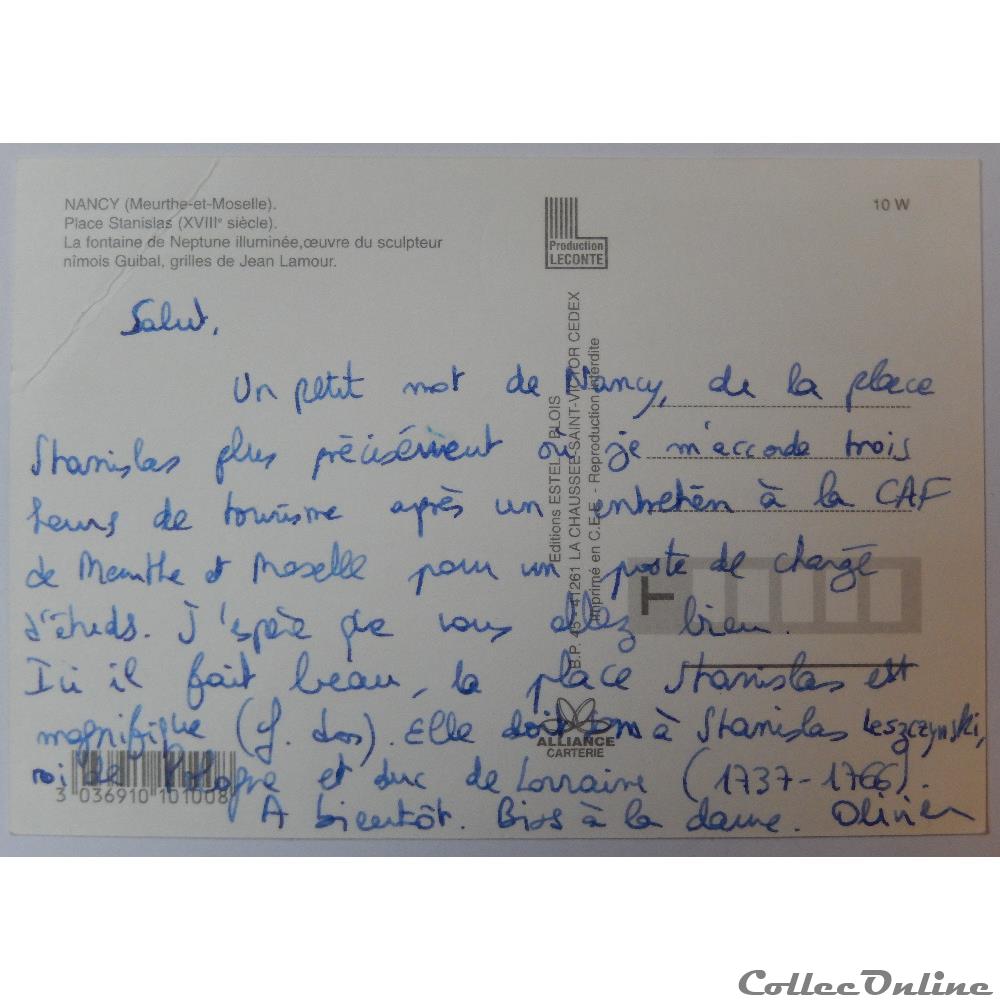 NANCY (Meurthe-et-Moselle).
Place Stanislas (XVIIIᵉ siècle).
La fontaine de Neptune illuminée,œuvre du sculpteur
nîmois Guibal, grilles de Jean Lamour.
Production
LECONTE
10 W
Editions ESTEL - BLOIS
B.P. 45 - 41261 LA CHAUSSEE-SAINT-VICTOR CEDEX
Imprimé en C.E.E. - Reproduction interdite
Salut,
Un petit mot de Nancy, de la place
Stanislas plus précisément où je m'accorde trois
heures de tourisme après un entretien à la CAF
de Meurthe et Moselle pour un poste de chargé
d'études. J'espère que vous allez bien.
Ici il fait beau, la place Stanislas est
magnifique (cf. dos). Elle doit son à Stanislas Leszczynski,
roi de Pologne et duc de Lorraine (1737-1766).
A bientôt. Biss à la dame. Olivier
T
ALLIANCE
CARTERIE
3 036910 101008
CollecOnline